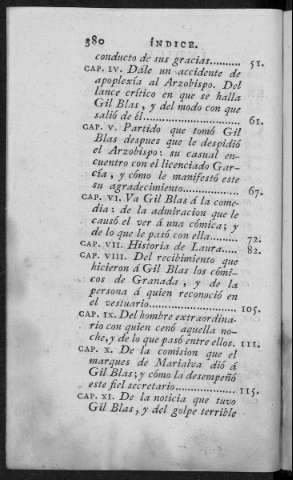 380 ÍNDICE.
conducto de sus gracias......... 51.
CAP. IV. Dále un accidente de
apoplexía al Arzobispo. Del
lance crítico en que se halla
Gil Blas, y del modo con que
salió de él........................ 61.
CAP. V. Partido que tomó Gil
Blas despues que le despidió
el Arzobispo: su casual en-
cuentro con el licenciado Gar-
cía, y cómo le manifestó este
su agradecimiento................ 67.
CAP. VI. Va Gil Blas á la come-
dia: de la admiracion que le
causó el ver á una cómica; y
de lo que le pasó con ella....... 72.
CAP. VII. Historia de Laura..... 82.
CAP. VIII. Del recibimiento que
hicieron á Gil Blas los cómi-
cos de Granada, y de la
persona á quien reconoció en
el vestuario..................... 105.
CAP. IX. Del hombre extraordina-
rio con quien cenó aquella no-
che, y de lo que pasó entre ellos. 111.
CAP. X. De la comision que el
marques de Marialva dió á
Gil Blas; y cómo la desempeñó
este fiel secretario............. 115.
CAP. XI. De la noticia que tuvo
Gil Blas, y del golpe terrible